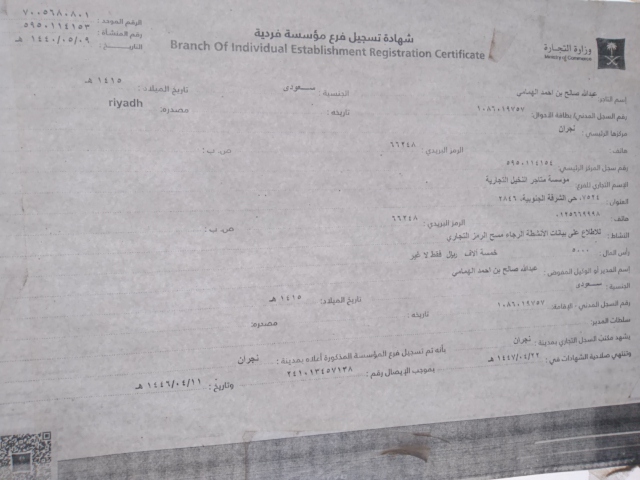 ٧٠٠٥٦٨٠٨٠١ الرقم الموحد :
٥٩٥٠١١٤١٥٣ رقم المنشأة :
١٤٤٠/٠٥/٠٩ هـ التاريخ :
شهادة تسجيل فرع مؤسسة فردية
Branch Of Individual Establishment Registration Certificate
وزارة التجارة
Ministry of Commerce
إسم التاجر عبدالله صالح بن احمد الهمامي الجنسية : سعودي تاريخ الميلاد : ١٤١٥ هـ
رقم السجل المدني/ بطاقة الأحوال: ١٠٨٦٠١٩٧٥٧ تاريخه : مصدره: riyadh
مركزها الرئيسي: نجران
هاتف: الرمز البريدي : ٦٦٢٤٨ ص. ب :
رقم سجل المركز الرئيسي: ٥٩٥٠١١٤١٥٤
الإسم التجاري للفرع: موسسة متاجر النخيل التجارية
العنوان : ٧٥٢٤، حي الشرفة الجنوبية، ٢٨٤٦
هاتف: ٠٢٩٥٦٦٩٩٩٨ الرمز البريدي : ٦٦٢٤٨ ص. ب :
النشاط: للاطلاع على بيانات الأنشطة الرجاء مسح الرمز التجاري
رأس المال: ٥٠٠٠ خمسة آلاف ريال فقط لا غير
إسم المدير أو الوكيل المفوض: عبدالله صالح بن احمد الهمامي
الجنسية : سعودي تاريخ الميلاد: ١٤١٥ هـ
رقم السجل المدني - الإقامة: ١٠٨٦٠١٩٧٥٧ تاريخه : مصدره:
سلطات المدير:
يشهد مكتب السجل التجاري بمدينة : نجران بأنه تم تسجيل فرع المؤسسة المذكورة أعلاه بمدينة : نجران
وتنتهي صلاحية الشهادات في: ١٤٤٧/٠٤/٢٢ هـ بموجب الإيصال رقم : ٢٤١٠١٣٤٥٧١٣٨ وتاريخ : ١٤٤٦/٠٤/١١ هـ